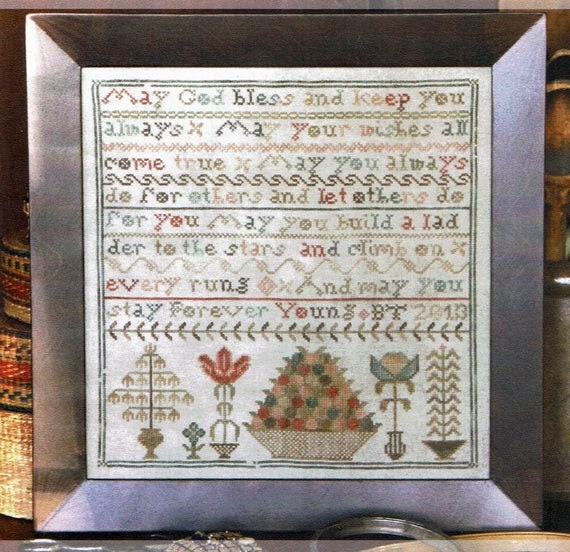 May God bless and keep you
always x May your wishes all
come true x May you always
do for others and let others do
for you May you build a lad
der to the stars and climb on x
every rung x And may you
stay forever Young BT 2013